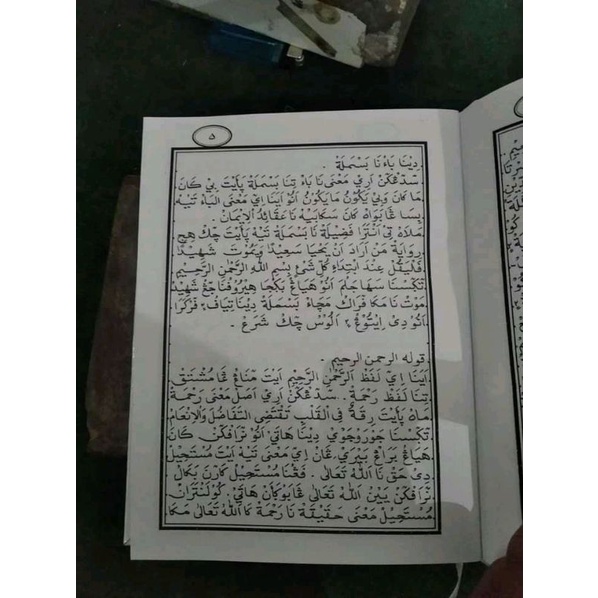 ٥
دِيْنَا بَاءْ نَا بَسْمَلَة .
سَدَعْكَنْ اَرِيْ مَعْنَى نَا بَاءْ تِنَا بَسْمَلَة پَاَيْتْ بِيْ كَانَ
مَا كَانَ وَبِيْ يَكُوْنُ مَايَكُوْنُ اَتَوْ اَيْنَا اِيْ مَعْنَى الْبَاءْ تَيَهْ
بِسَا ڠَابَوَاهْ كَانَ سَكَابَيَهْ نَا عَقَائِدُ الْاِيْمَانْ .
مَلَاهْ تِيْ اَنْتَرَا فَضِيْلَة نَا بَسْمَلَة تَيَهْ پَاَيْتْ چَكْ هِجْ
رِوَايَة مَنْ اَرَادَ اَنْ يَحْيَا سَعِيْدًا وَيَمُوْتَ شَهِيْدًا
فَلْيَقُلْ عِنْدَ ابْتِدَاءِ كُلِّ شَيْئٍ بِسْمِ اللهِ الرَّحْمٰنِ الرَّحِيْمِ
تَكْسْنَا سَهَا جَلْمَ اَنُوْ هَيَاڠْ بَكْجَا هِيْرُوْفْنَا جَڠْ شَهِيْدْ
مَوْتْ نَا مَكَا كُرَاكْ مَچَاهْ بَسْمَلَة دِيْنَا تِيَافْ٢ فَرْكَرَا
اَنُوْ دِيْ اِيْتُوْڠْ ٢ اَلُوْسْ چَكْ شَرَعْ .
قوله الرحمن الرحيم .
اَيْنَا اِيْ لَفَظْ اَلرَّحْمٰنِ الرَّحِيْمِ اَيْتْ مَنَاڠْ ڠَا مُشْتَقْ
تِنَا لَفَظْ رَحْمَة . سَدَعْكَنْ اَرِيْ اَصَلْ مَعْنَى رَحْمَة
مَاهْ پَاَيْتْ رِقَّةٌ فِي الْقَلْبِ تَقْتَضِى التَّفَاضُلَ وَالْاِنْعَامْ
تَكْسْنَا جَوْرَوْجَوْيْ دِيْنَا هَاتَيْ اَنُوْ نَرَافْكَنْ كَانَ
هَيَاڠْ بَرَاڠْ بَيْرَيْ، ڠَانْ اِيْ مَعْنَى تَيَهْ اَيْتْ مُسْتَحِيْلْ
دِيْ حَقْ نَا اللهُ تَعَالَى . فَقْنَا مُسْتَحِيْلْ كَارَنْ بَكَالْ
نَرَافْكَنْ يَيْنْ اللهُ تَعَالَى ڠَابَوْكَاَنْ هَاتَيْ . كُوْلَنْتَرَانْ
مُسْتَحِيْلْ مَعْنَى حَقِيْقَة نَا رَحْمَة كَا اللهُ تَعَالَى مَكَا